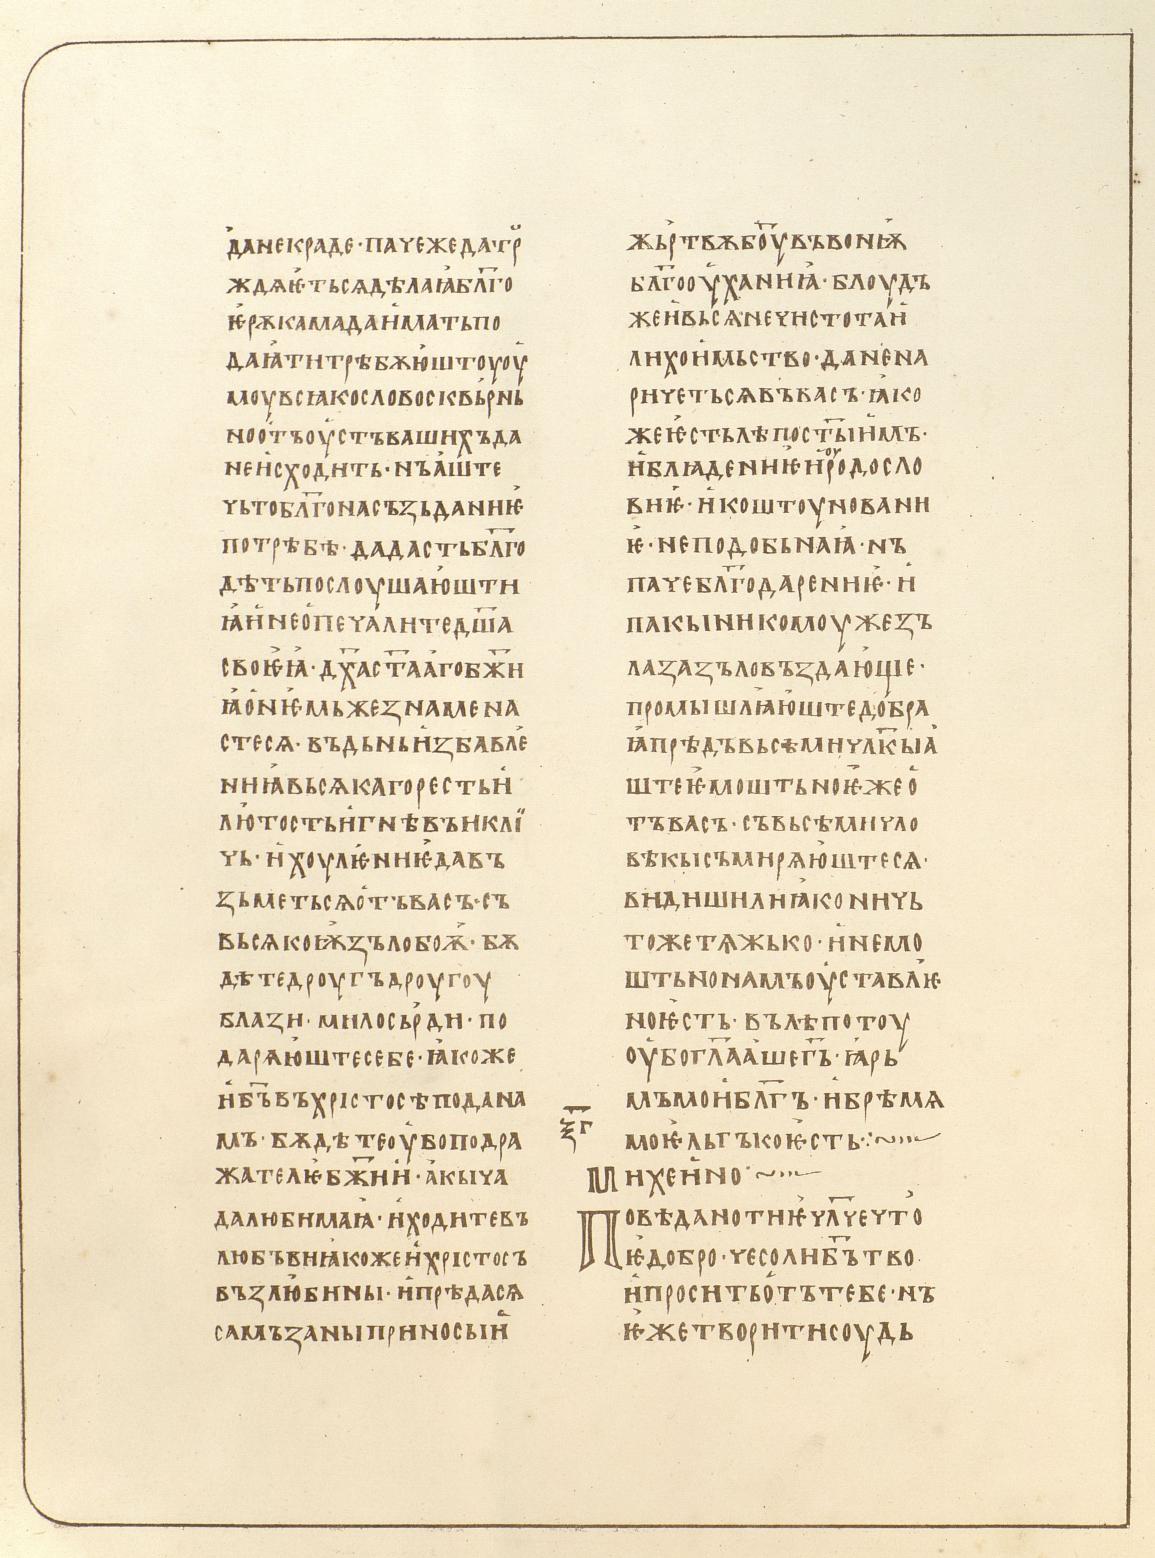 да некраде · паче же да тр
ждаѥть сѧ дѣлаꙗ бл҃го
ѥ рѫкама да имать по
даꙗти трѣбѫюштоуоу
моу всꙗко слово сквьрнь
но отъ оустъ вашихъ да
не исходить · нъ аште
чьто бл҃го на съзьданиѥ
потрѣбѣ · да дасть бл҃го
дѣть послоушаюшти
ꙗ и не опечалите дш҃а
своѥꙗ · дх҃а ст҃ааго бж҃и
ꙗ о н ѥмьже знамена
сте сѧ · въ дьнь избавле
ниꙗ вьсѧка горесть и
лютость и гнѣвъ и клі
чь · и хоулѥниѥ да въ
зьметь сѧ отъ васъ · съ
вьсѧкоѭ зълобоѭ · бѫ
дѣте дроугъ дроугоу
блази · милосьрди · по
дарѧюште себе · ꙗкоже
и б҃ъ въ хрістосѣ подана
мъ · бѫдѣте оубо подра
жателѥ бж҃ии · акы ча
да любимаꙗ · и ходите въ
любъви ꙗкоже и хрістосъ
възлюби ны · и прѣда сѧ
самъ за ны приносъ и
жьртвѫ б҃оу въ вонѭ
бл҃гооуханиꙗ · блоудъ
же и вьсꙗ нечистота и
лихоимьство · да не на
ричеть сѧ въ васъ · ꙗко
же ѥсть лѣпо ст҃ыимъ ·
и блꙗдениѥ и оуродосло
виѥ · и коштоуновани
ѥ · неподобьнаꙗ · нъ
паче бл҃годарениѥ · и
пакы никомоуже зъ
ла за зъло въздающе ·
промышлꙗюште добра
ꙗ прѣдъ вьсѣми чл҃кы а
ште ѥ мощьно ѥже о
тъ васъ · съ вьсѣми чло
вѣкы съмирѧюште сѧ ·
видиши ли ꙗко ничь
тоже тѧжько · и немо
штьно намъ оуставлѥ
но ѥсть · въ лѣпотоу
оубо гл҃аашегь · ꙗрь
мъ мои бл҃гъ · и брѣмѧ
моѥ льгъко ѥсть ·:~
ѯ҃г
михеино ·~
Повѣдано ти ѥ чл҃че что
ѥ добро · чесо ли б҃ъ тво
и просить отъ тебе · нъ
ѥже творити соудь